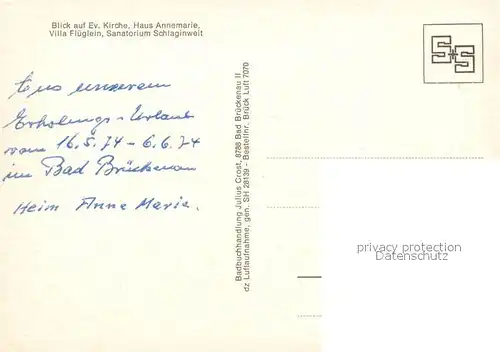 Blick auf Ev. Kirche, Haus Annemarie,
Villa Flüglein, Sanatorium Schlagintweit
Aus unserem
Erholungs-Urlaub
vom 16.5.74 - 6.6.74
im Bad Brückenau
Heim Anne Marie.
Badbuchhandlung Julius Crost, 8788 Bad Brückenau II
dz Luftaufnahme, gen. SH 28139 - Bestellnr. Brück Luft 7070
S+S
privacy protection
Datenschutz